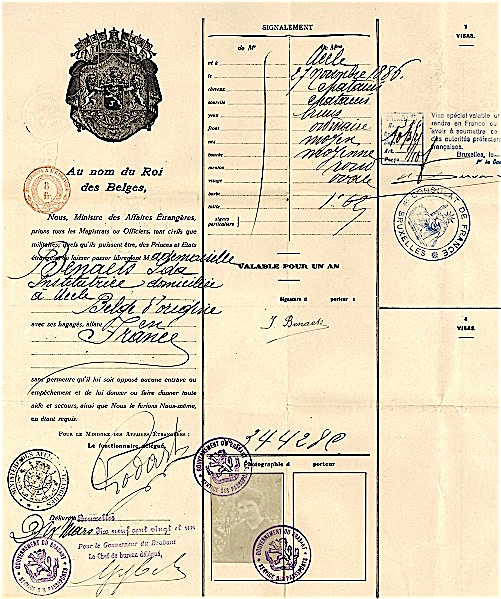 Au nom du Roi
des Belges,
Nous, Ministre des Affaires Étrangères,
prions tous les Magistrats ou Officiers, tant civils que
militaires, quels qu'ils puissent être, des Princes et Etats
étrangers de laisser passer librement M ademoiselle
Benaets Ida
Institutrice domiciliée
à Uccle
Belge d'origine
avec ses bagages, allant en
France
sans permettre qu'il lui soit opposé aucune entrave ou
empêchement et de lui donner ou faire donner toute
aide et secours, ainsi que Nous le ferions Nous-même,
en étant requis.
POUR LE MINISTRE DES AFFAIRES ÉTRANGÈRES :
Le fonctionnaire délégué,
Délivré à Bruxelles
Dix mars dix neuf cent vingt et un
Pour le Gouverneur du Brabant
Le Chef de bureau délégué,
GOUVERNEMENT DU BRABANT
SERVICE DES PASSEPORTS
SIGNALEMENT
de Mr
de Mme
né à Uccle
le 27 novembre 1886
cheveux chatains
sourcils chatains
yeux
front ordinaire
nez moyen
bouche moyenne
menton rond
visage ovale
barbe
taille
signes
particuliers
VALABLE POUR UN AN
Signature du porteur :
I. Benaets
34428C
Photographie du porteur
GOUVERNEMENT DU BRABANT
SERVICE DES PASSEPORTS
GOUVERNEMENT DU BRABANT
SERVICE DES PASSEPORTS
VISAS.
Visa spécial valable un
rendre en France ou
avoir à soumettre ce
des autorités
françaises.
Bruxelles, le
CONSULAT DE FRANCE
BRUXELLES
4
VISAS.